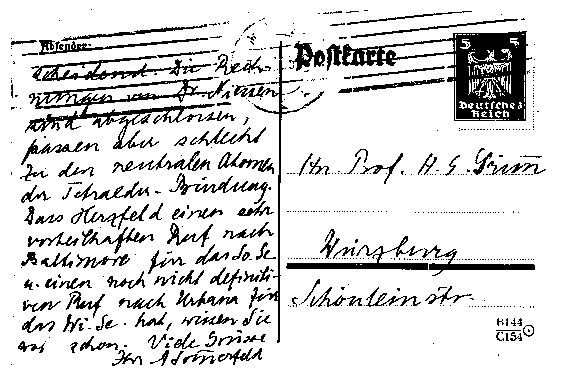 Absender:
scheidend. Die Rech-
nungen von Dr. Niessen
sind abgeschlossen,
passen aber schlecht
zu den neutralen Atomen
der Tetraeder-Bindung.
Dass Herzfeld einen sehr
vorteilhaften Ruf nach
Baltimore für das So.Se
u. einen noch nicht definiti-
ven Ruf nach Urbana für
das Wi.Se. hat, wissen Sie
wohl schon. Viele Grüsse
Ihr ASommerfeld
Postkarte
5 5
Deutsches
Reich
Hn Prof. H. G. Grimm
Würzburg
Schönleinstr.
B144
C154